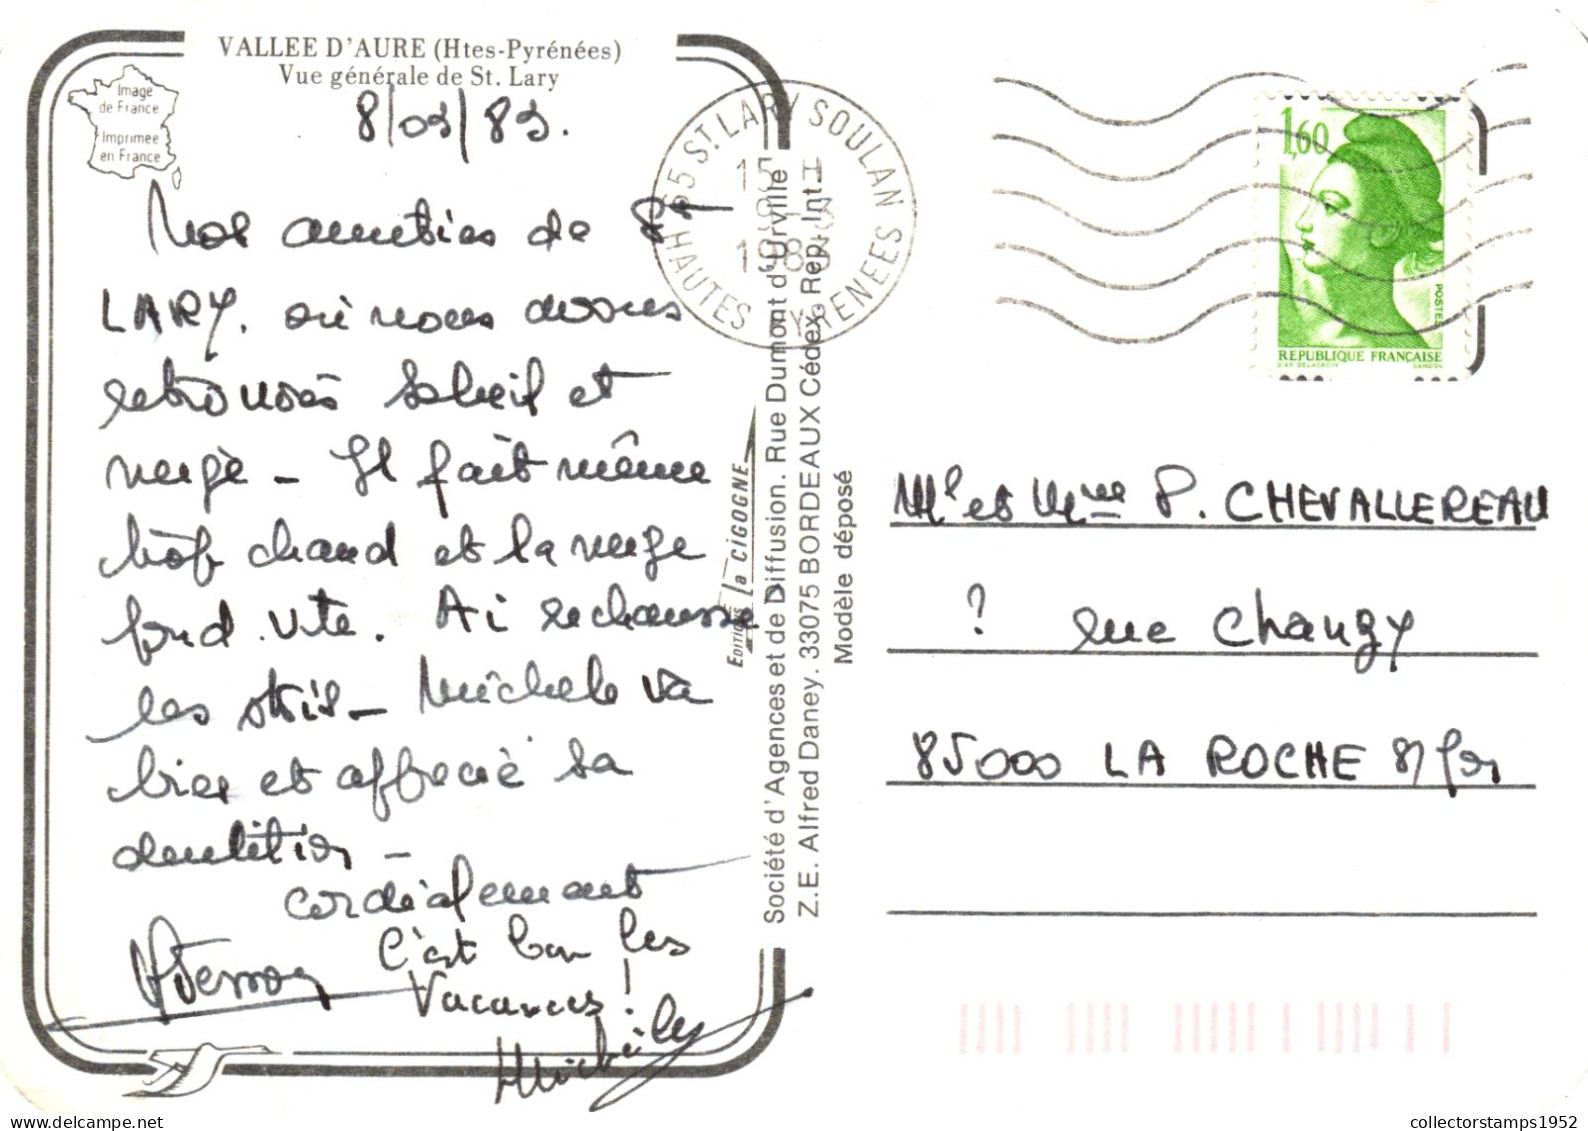 VALLEE D'AURE (Htes-Pyrénées)
Vue générale de St. Lary
Image
de France
Imprimée
en France
8/03/83.
Nos amitiés de St
LARY. où nous avons
retrouvés Soleil et
neige - Il fait même
trop chaud et la neige
fond vite. Ai rechaussé
les skis - Michele va
bien et apprécie sa
dentition -
cordialement
C'est bon les
Vacances !
65 ST. LARY SOULAN
15 H
8 - 3
1983
HAUTES PYRENEES
1,60
POSTES
REPUBLIQUE FRANÇAISE
D'AP. DELACROIX GANDON
EDITIONS la CIGOGNE
Société d'Agences et de Diffusion. Rue Dumont d'Urville
Z.E. Alfred Daney. 33075 BORDEAUX Cédex. Rep. Int.
Modèle déposé
Mr et Mme P. CHEVALLEREAU
? rue Chanzy
85000 LA ROCHE s/Yon
collectorstamps1952